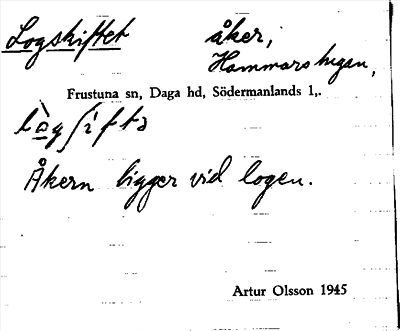 Logskiftet åker,
Hammarstugan,
Frustuna sn, Daga hd, Södermanlands l,.
Åkern ligger vid logen.
Artur Olsson 1945